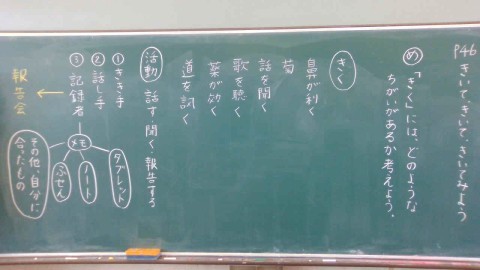 P46 きいて、きいて、きいてみよう
め 「きく」には、どのような
ちがいがあるか考えよう。
きく
鼻が利く
菊
話を聞く
歌を聴く
薬が効く
道を訊く
活動 話す・聞く・報告する
①きき手
②話し手
③記録者
メモ
タブレット
ノート
ふせん
その他、自分に
合ったもの
報告会